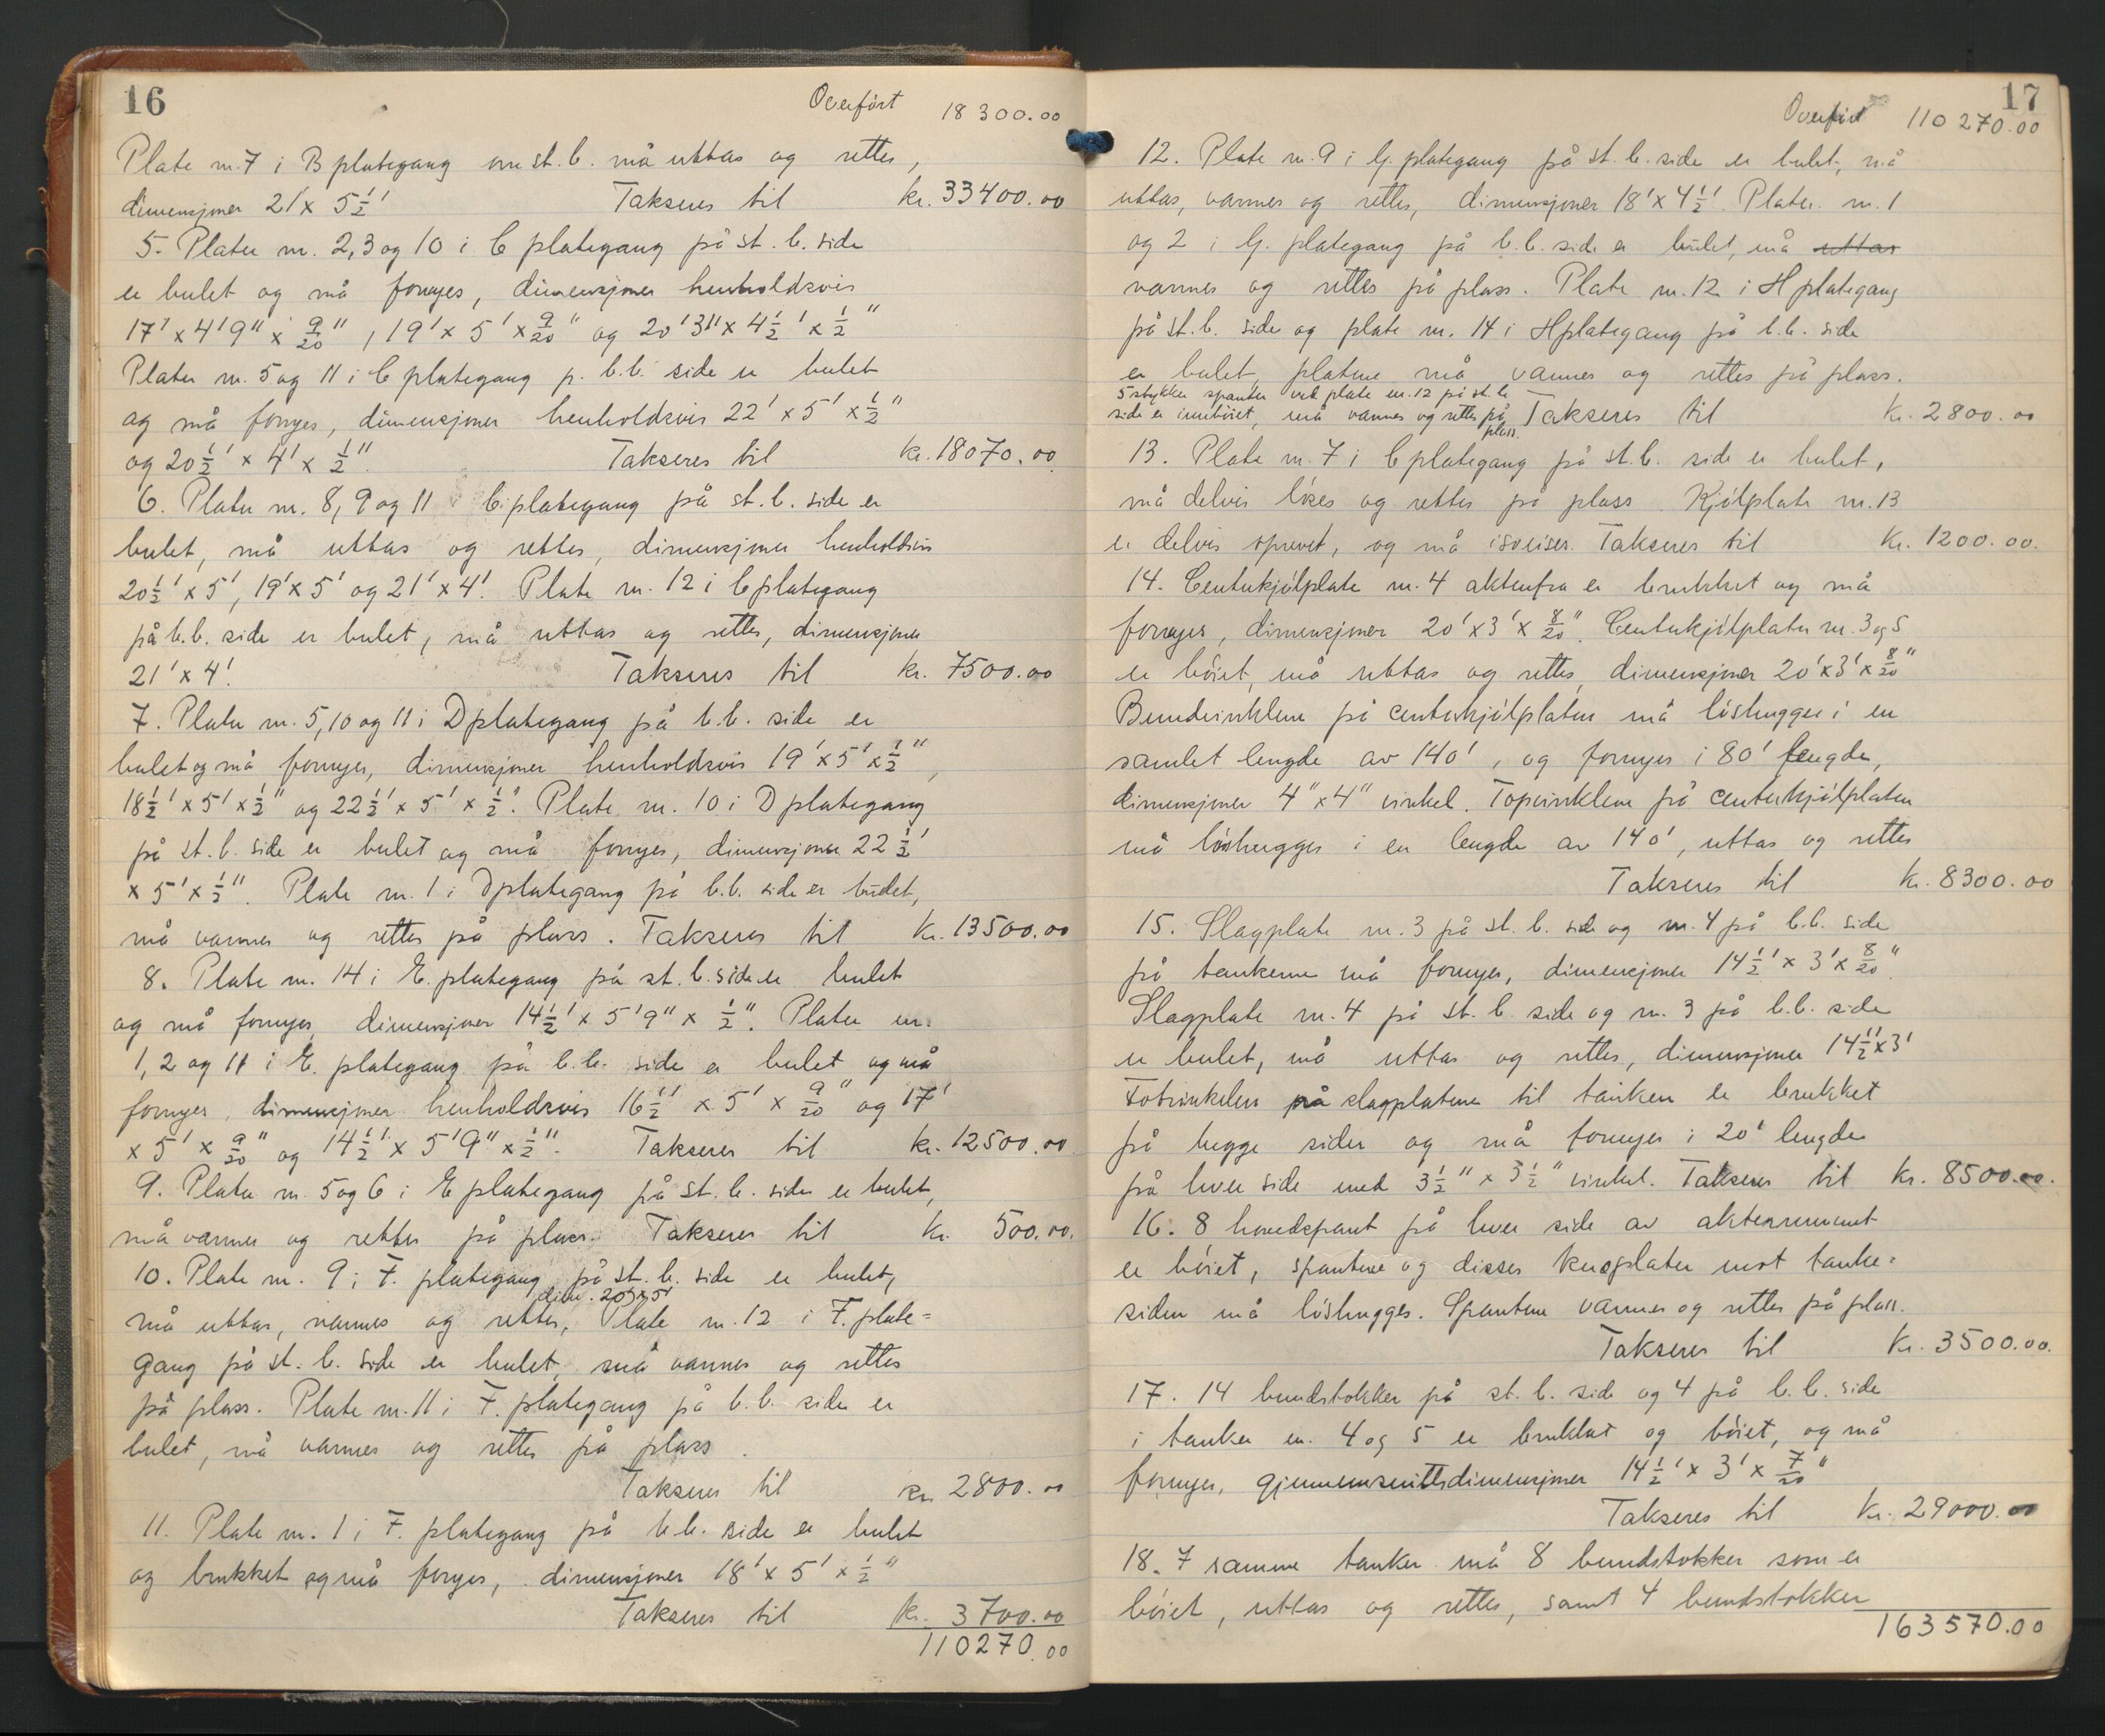 16
Overført 18 300.00
Plate nr. 7 i B plategang om st. b. må uttas og rettes,
dimensjoner 21' x 5 1/2' Takseres til kr. 33400.00
5. Plater nr. 2, 3 og 10 i C plategang på st. b. side
er bulet og må fornyes, dimensjoner henholdsvis
17' x 4' 9" x 9/20", 19' x 5' x 9/20" og 20' 3" x 4 1/2' x 1/2"
Plater nr. 5 og 11 i C plategang p. b.b. side er bulet
og må fornyes, dimensjoner henholdsvis 22' x 5' x 1/2"
og 20 1/2' x 4' x 1/2". Takseres til kr. 18070.00
6. Plater nr. 8, 9 og 11 i C plategang på st. b. side er
bulet, må uttas og rettes, dimensjoner henholdsvis
20 1/2' x 5', 19' x 5' og 21' x 4'. Plate nr. 12 i C plategang
på b.b. side er bulet, må uttas og rettes, dimensjoner
21' x 4'. Takseres til kr. 7500.00
7. Plater nr. 5, 10 og 11 i D plategang på b.b. side er
bulet og må fornyes, dimensjoner henholdsvis 19' x 5' x 1/2",
18 1/2' x 5' x 1/2" og 22 1/2' x 5' x 1/2". Plate nr. 10 i D plategang
på st. b. side er bulet og må fornyes, dimensjoner 22 1/2'
x 5' x 1/2". Plate nr. 1 i D plategang på b.b. side er bulet,
må varmes og rettes på plass. Takseres til kr. 13500.00
8. Plate nr. 14 i E. plategang på st. b. side er bulet
og må fornyes, dimensjoner 14 1/2' x 5' 9" x 1/2". Plater nr.
1, 2 og 11 i E. plategang på b.b. side er bulet og må
fornyes, dimensjoner henholdsvis 16 1/2' x 5' x 9/20" og 17'
x 5' x 9/20" og 14 1/2' x 5' 9" x 1/2". Takseres til kr. 12500.00
9. Plater nr. 5 og 6 i E plategang på st. b. side er bulet,
må varmes og rettes på plass. Takseres til kr. 500.00.
10. Plate nr. 9 i F. plategang på st. b. side er bulet,
dim. 20' x 5'
må uttas, varmes og rettes, Plate nr. 12 i F. plate=
gang på st. b. side er bulet, må varmes og rettes
på plass. Plate nr. 11 i F. plategang på b.b. side er
bulet, må varmes og rettes på plass.
Takseres til kr. 2800.00
11. Plate nr. 1 i F. plategang på b.b. side er bulet
og brukket og må fornyes, dimensjoner 18' x 5' x 1/2"
Takseres til kr. 3700.00
110270.00
17
Overført 110 270.00
12. Plate nr. 9 i G. plategang på st. b. side er bulet, må
uttas, varmes og rettes, dimensjoner 18' x 4 1/2'. Plater nr. 1
og 2 i G. plategang på b.b. side er bulet, må uttas
varmes og rettes på plass. Plate nr. 12 i H plategang
på st. b. side og plate nr. 14 i H plategang på b.b. side
er bulet, platene må varmes og rettes på plass.
5 stykker spanter ved plate nr. 12 på st. b.
side er innbøiet, må varmes og rettes på plass. Takseres til kr. 2800.00
13. Plate nr. 7 i C plategang på st. b. side er bulet,
må delvis løses og rettes på plass. Kjølplate nr. 13
er delvis oprevet, og må isveises. Takseres til kr. 1200.00.
14. Centerkjølplate nr. 4 aktenfra er brukket og må
fornyes, dimensjoner 20' x 3' x 8/20". Centerkjølplater nr. 3 og 5
er bøiet, må uttas og rettes, dimensjoner 20' x 3' x 8/20"
Bundvinklene på centerkjølplaten må løshugges i en
samlet lengde av 140', og fornyes i 80' lengde,
dimensjoner 4" x 4" vinkel. Topvinklene på centerkjølplaten
må løshugges i en lengde av 140', uttas og rettes
Takseres til kr. 8300.00
15. Slagplate nr. 3 på st. b. side og nr. 4 på b.b. side
på tankerne må fornyes, dimensjoner 14 1/2' x 3' x 8/20".
Slagplate nr. 4 på st. b. side og nr. 3 på b.b. side
er bulet, må uttas og rettes, dimensjoner 14 1/2' x 3'
Fotvinkelen på slagplatene til tanken er brukket
på begge sider og må fornyes i 20' lengde
på hver side med 3 1/2" x 3 1/2" vinkel. Takseres til kr. 8500.00.
16. 8 hovedspant på hver side av akterrummet
er bøiet, spantene og disses kneplater mot tanke=
siden må løshugges. Spantene varmes og rettes på plass.
Takseres til kr. 3500.00.
17. 14 bundstokker på st. b. side og 4 på b.b. side
i tanker nr. 4 og 5 er brukket og bøiet, og må
fornyes, gjennemsnittsdimensjoner 14 1/2' x 3' x 7/20"
Takseres til kr. 29000.00
18. I samme tanker må 8 bundstokker som er
bøiet, uttas og rettes, samt 4 bundstokker
163570.00